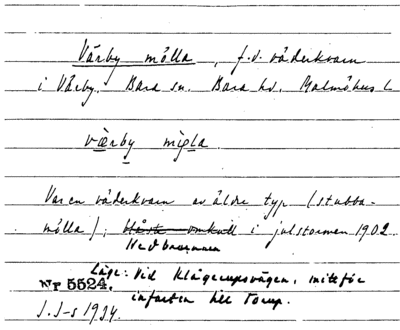 Värby mölla, f.d. väderkvarn
i Värby. Bara sn. Bara hd. Malmöhus l.
værby mìgla.
Var en väderkvarn av äldre typ (stubba-
mölla); blåste omkull i julstormen 1902.
Nedbrunnen
Läge: Vid Klågerupsvägen, mitt för
Nr 5524. infarten till Torup.
J. I-s 1934.